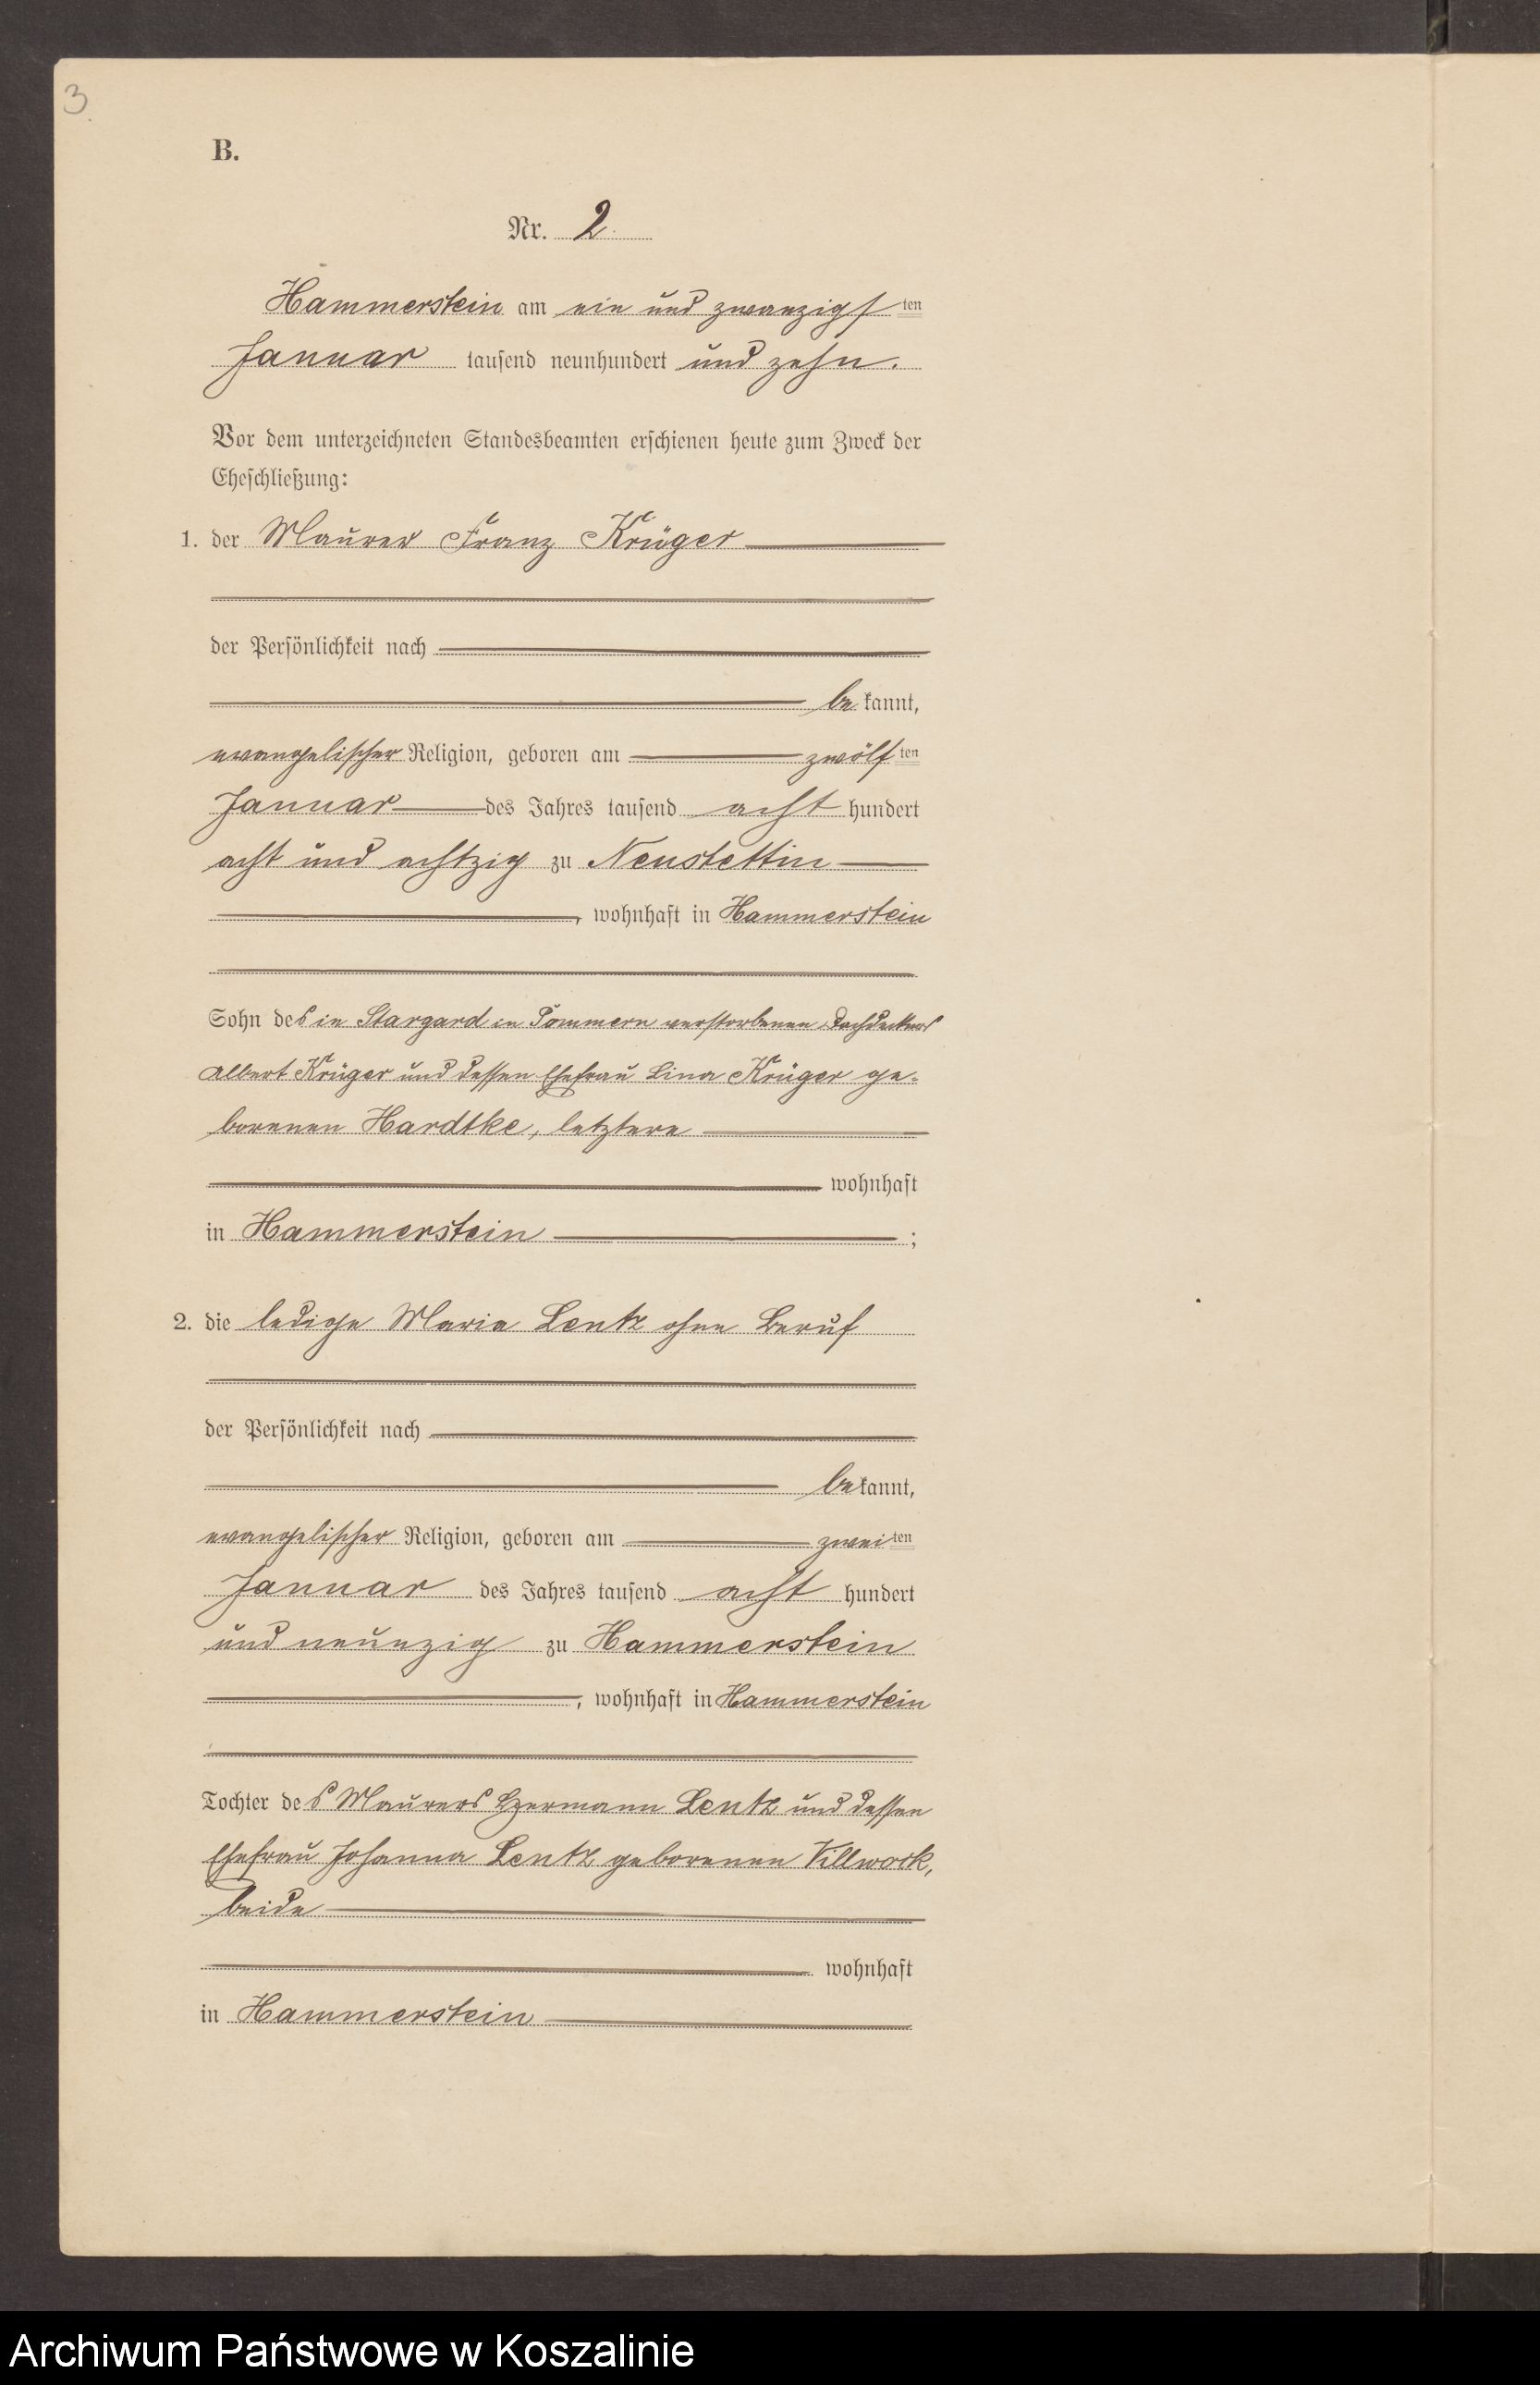 3.
B.
Nr. 2.
Hammerstein am ein und zwanzigsten
Januar tausend neunhundert und zehn.
Vor dem unterzeichneten Standesbeamten erschienen heute zum Zweck der
Eheschließung:
1. der Maurer Franz Krüger
der Persönlichkeit nach
bekannt,
evangelischer Religion, geboren am zwölften
Januar des Jahres tausend acht hundert
acht und achtzig zu Neustettin
, wohnhaft in Hammerstein
Sohn des in Stargard in Pommern verstorbenen Dachdeckers
Albert Krüger und dessen Ehefrau Lina Krüger ge-
borenen Hardtke, letztere
wohnhaft
in Hammerstein ;
2. die ledige Maria Lentz ohne Beruf
der Persönlichkeit nach
bekannt,
evangelischer Religion, geboren am zweiten
Januar des Jahres tausend acht hundert
und neunzig zu Hammerstein
, wohnhaft in Hammerstein
Tochter des Maurers Hermann Lentz und dessen
Ehefrau Johanna Lentz geborenen Villwock,
beide
wohnhaft
in Hammerstein
Archiwum Państwowe w Koszalinie